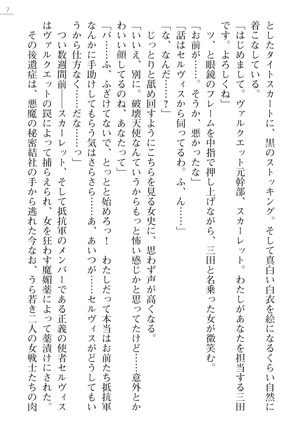 7
としたタイトスカートに、黒のストッキング。そして真白い白衣を絵になるくらい自然に
着こなしている。
「はじめまして。ヴァルクエット元幹部、スカーレット。わたしがあなたを担当する三田
です。よろしくね」
ツ、と眼鏡のフレームを中指で押し上げながら、三田と名乗った女が微笑む。
「お前が……。そうか、悪かったな」
「話はセルヴィスから伺ってるわ。ふ、ん……」
「な、なんだ……？」
じっとりと舐め回すようにこちらを見る女史に、思わず声が高くなる。
「いいえ、別に。破壊天使なんていうからもっと怖い感じかと思ってたけど……意外とか
わいい顔してるのね、あなたって」
「バ――ふ、ふざけてないで、とっとと始めろっ！　わたしだって本当はお前たち抵抗軍
なんかに手助けしてもらう気はさらさら……あ、あいつが……セルヴィスがどうしてもい
うから仕方なく……だな……っ」
つい数週間前――スカーレット、そして抵抗軍のメンバーである正義の使者セルヴィス
はヴァルクエットの罠によって捕らえられ、女を狂わす魔媚薬によって薬漬けにされた。
その後遺症は、悪魔の秘密結社の手から逃れた今なお、うら若き二人の女戦士たちの肉